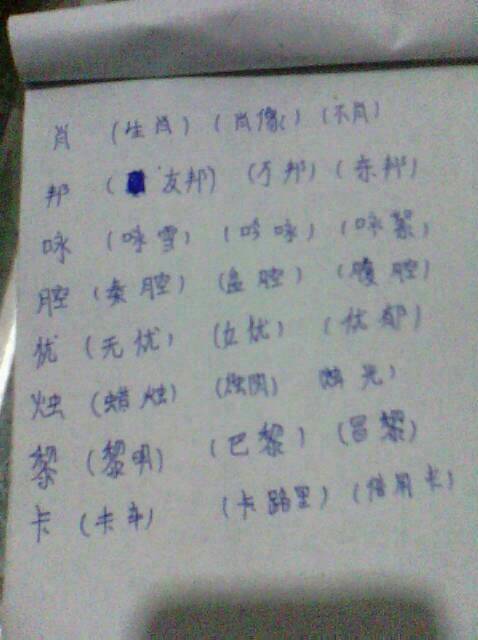 肖 (生肖) (肖像) (不肖)
邦 (友邦) (万邦) (东邦)
咏 (咏雪) (吟咏) (咏絮)
腔 (秦腔) (血腔) (腹腔)
忧 (无忧) (忧) (忧郁)
烛 (蜡烛) (烛肉) 烛光)
黎 (黎明) (巴黎) (黎)
卡 (卡车) (卡路里) (信用卡)